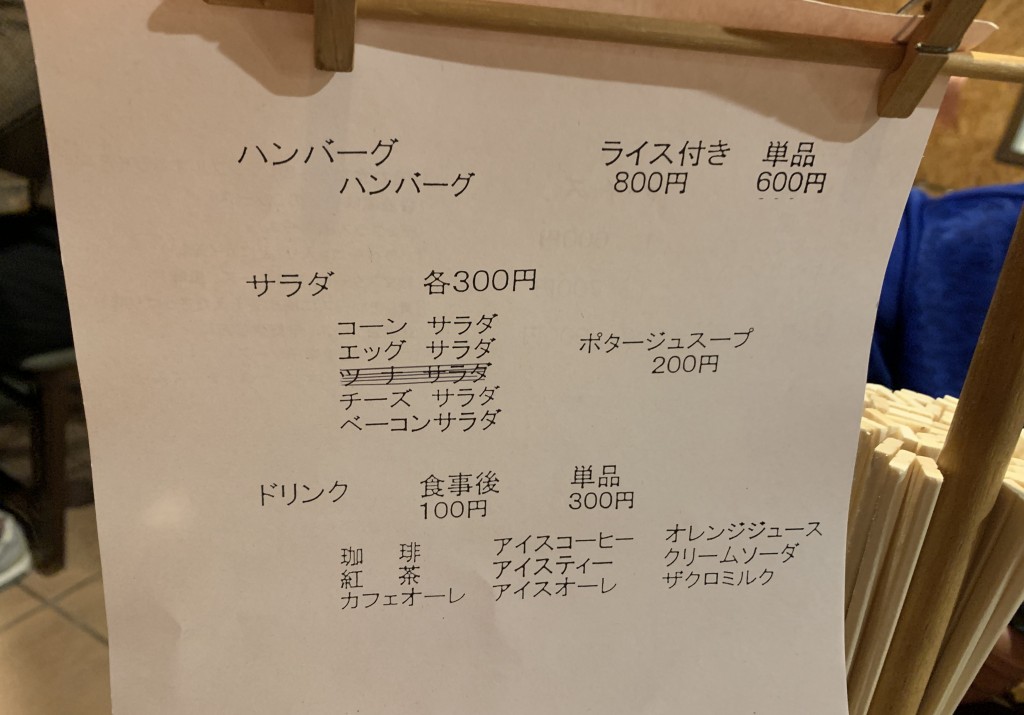 ハンバーグ ライス付き 単品
ハンバーグ 800円 600円
サラダ 各300円
コーン サラダ
エッグ サラダ
ツナ サラダ
チーズ サラダ
ベーコンサラダ
ポタージュスープ
200円
ドリンク 食事後 単品
100円 300円
珈琲 アイスコーヒー オレンジジュース
紅茶 アイスティー クリームソーダ
カフェオーレ アイスオーレ ザクロミルク